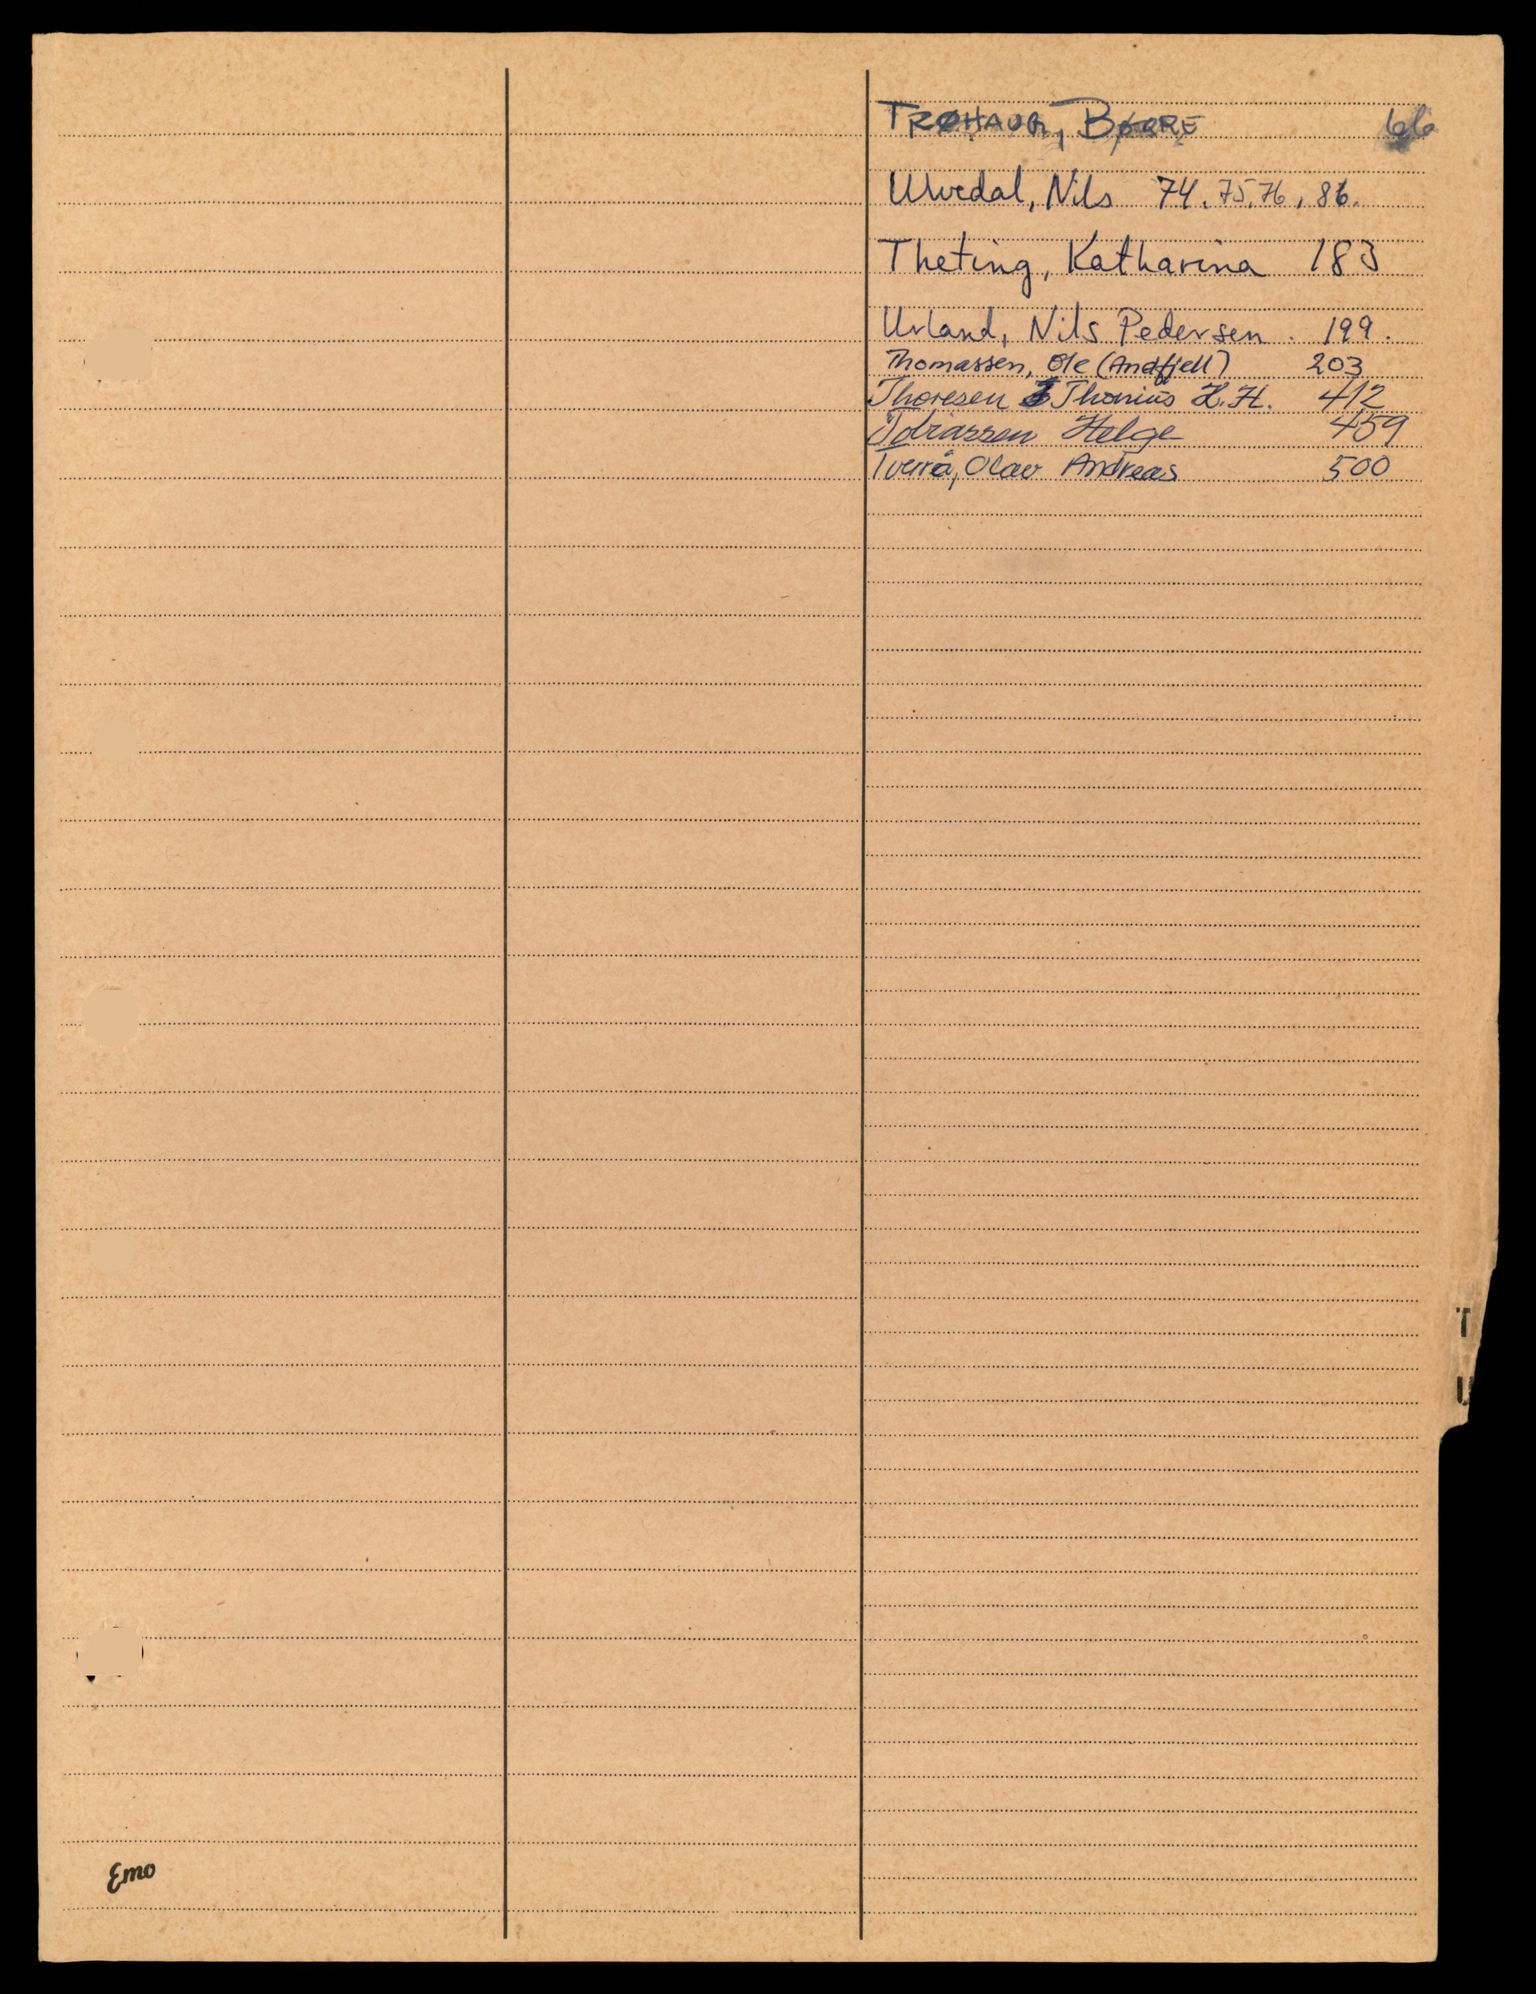 TRØHAUG, BØRRE 66
Ulvedal, Nils 74, 75, 76, 86.
Theting, Katharina 183
Urland, Nils Pedersen. 199.
Thomassen, Ole (Andfjell) 203
Thoresen Thonius H.H. 412
Tobiassen Helge 459
Tverrå, Olav Andreas 500
T
U
Emo